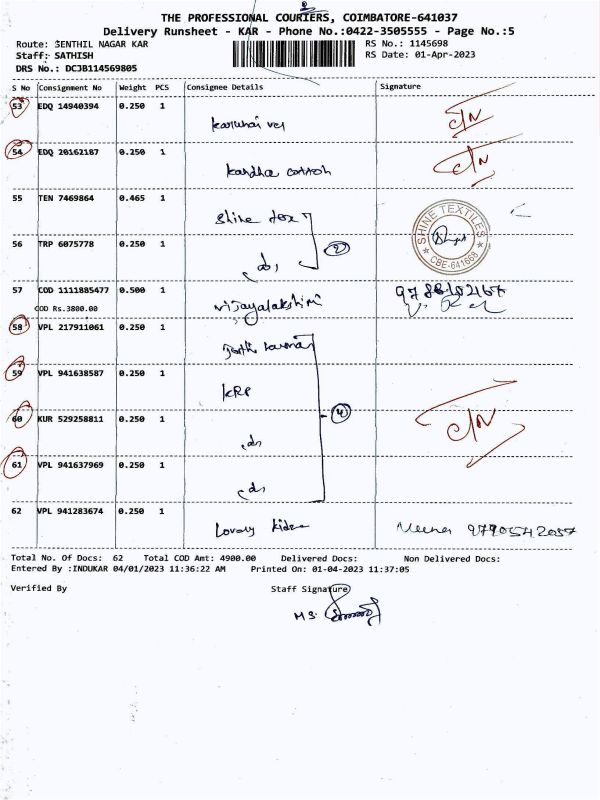 THE PROFESSIONAL COURIERS, COIMBATORE-641037
Delivery Runsheet - KAR - Phone No.:0422-3505555 - Page No.:5
Route: SENTHIL NAGAR KAR
RS No.: 1145698
Staff: SATHISH
RS Date: 01-Apr-2023
DRS No.: DCJB114569805
S No Consignment No Weight PCS Consignee Details Signature
53 EDQ 14940394 0.250 1 C/N
54 EDQ 20162187 0.250 1 C/N
55 TEN 7469864 0.465 1 Shine tex
SHINE TEXTILES
CBE-641668
56 TRP 6075778 0.250 1 2
57 COD 1111885477 0.500 1 vijayalakshimi
COD Rs.3800.00
58 VPL 217911061 0.250 1
59 VPL 941638587 0.250 1 KRP
60 KUR 529258811 0.250 1 4 C/N
61 VPL 941637969 0.250 1
62 VPL 941283674 0.250 1 Lovely Meena 9790542057
Total No. Of Docs: 62 Total COD Amt: 4900.00 Delivered Docs: Non Delivered Docs:
Entered By :INDUKAR 04/01/2023 11:36:22 AM Printed On: 01-04-2023 11:37:05
Verified By Staff Signature
M S.